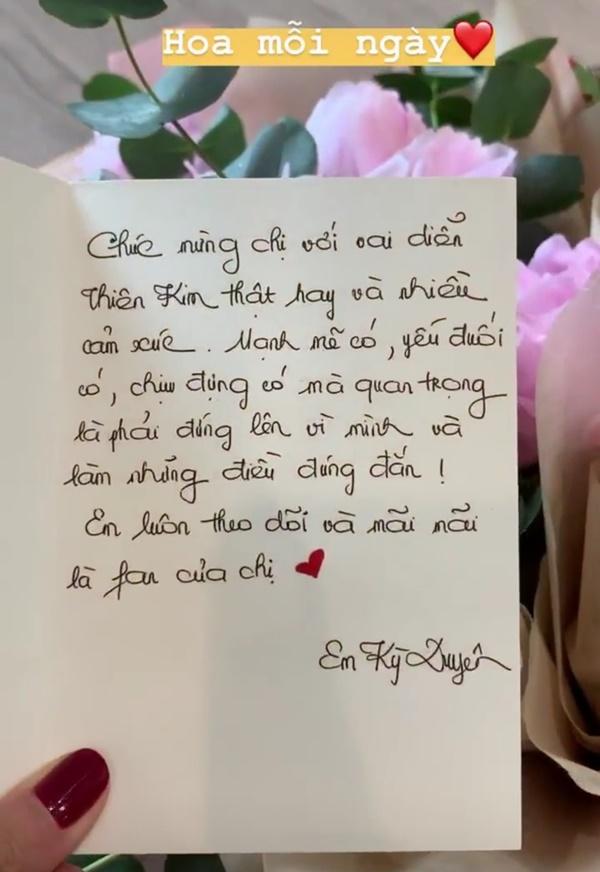 Hoa mỗi ngày❤️
Chúc mừng chị với vai diễn
Thiên Kim thật hay và nhiều
cảm xúc. Mạnh mẽ có, yếu đuối
có, chịu đựng có mà quan trọng
là phải đứng lên vì mình và
làm những điều đúng đắn!
Em luôn theo dõi và mãi mãi
là fan của chị ❤️
Em Kỳ Duyên